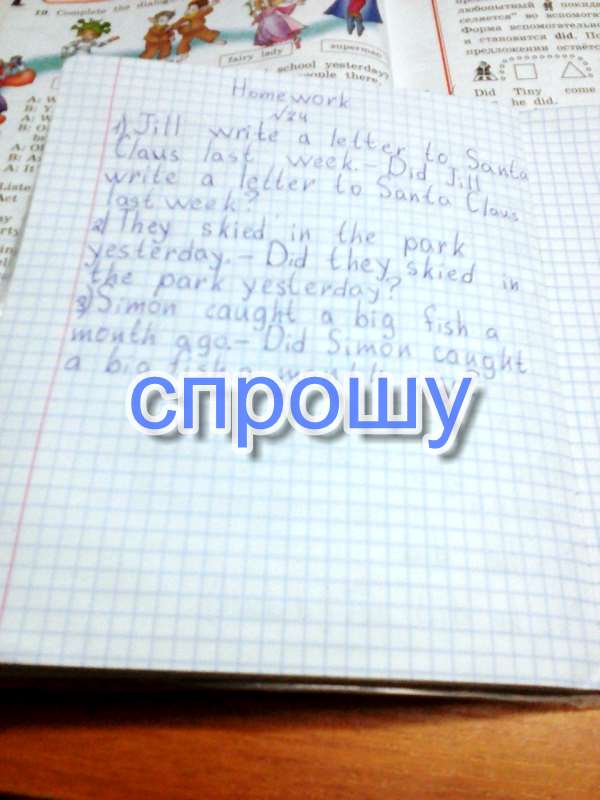 10. Complete the dialog
fairy lady
superman
school yesterday)
people there,
любопытный
покида
селяется" во вспомогат
Форма вспомогательно
и становится did. По
предложении остаётс
Did Tiny come
he did.
Homework
√24
1) Jill write a letter to Santa
Claus last week. – Did Jill
write a letter to Santa Claus
last week?
2) They skied in the park
yesterday. – Did they skied in
the park yesterday?
3) Simon caught a big fish a
month ago. – Did Simon caught
a big fish a
спрошу